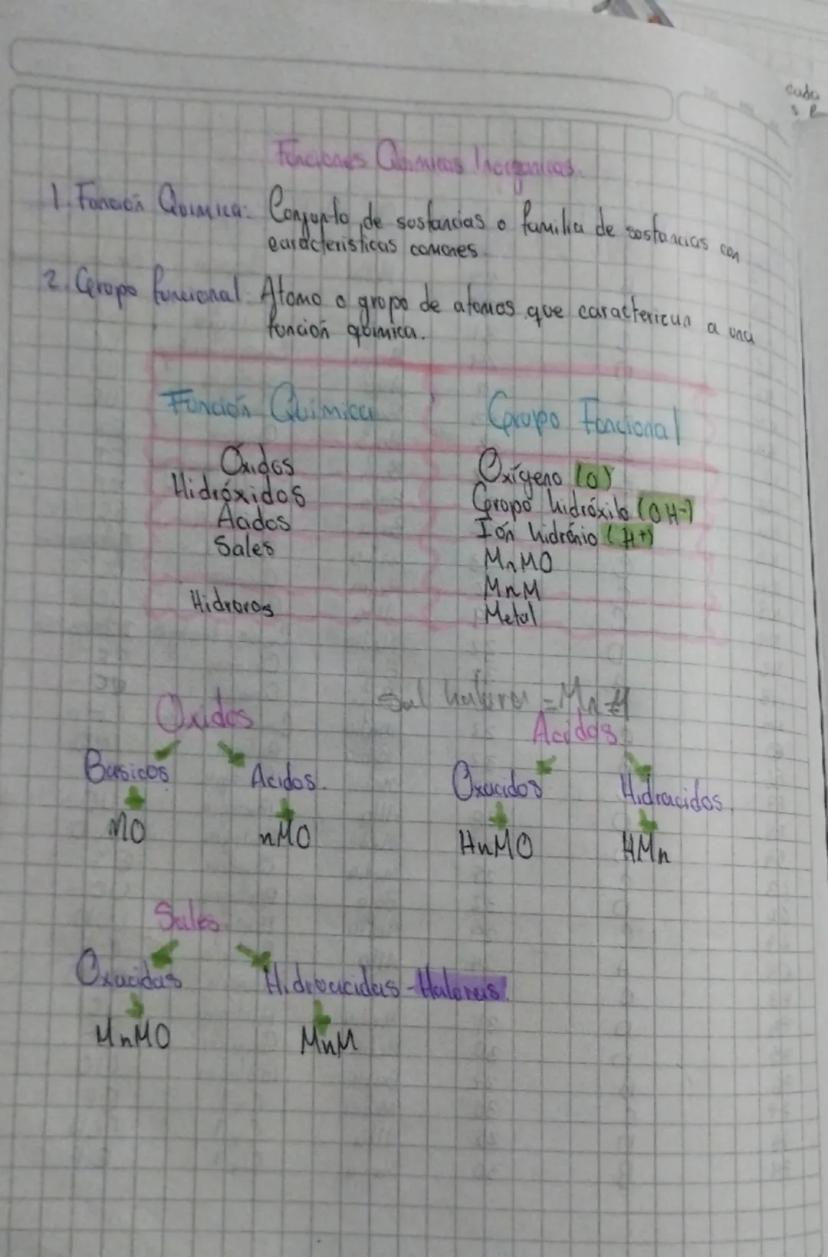 Funciones Químicas Inorganicas.
1. Función Química: Conjunto de sustancias o familia de sustancias con
características comunes
2. Grupo funcional: Atomo o grupo de atomos que caracterizan a una
función química.
Función Química
Grupo Funcional
Óxidos
Oxígeno (O)
Hidróxidos
Grupo hidróxilo (OH-)
Acidos
Ión hidrónio (H+)
Sales
MnMO
MnM
Hidruros
Metal
Sal halurea = Mn M
Oxidos
Acidos
Basicos
Acidos.
Oxacidos
Hidracidos.
MO
nMO
HnMO
HMn
Sales
Oxacidas
Hidroacidas - Haloreas
MnMO
MnM